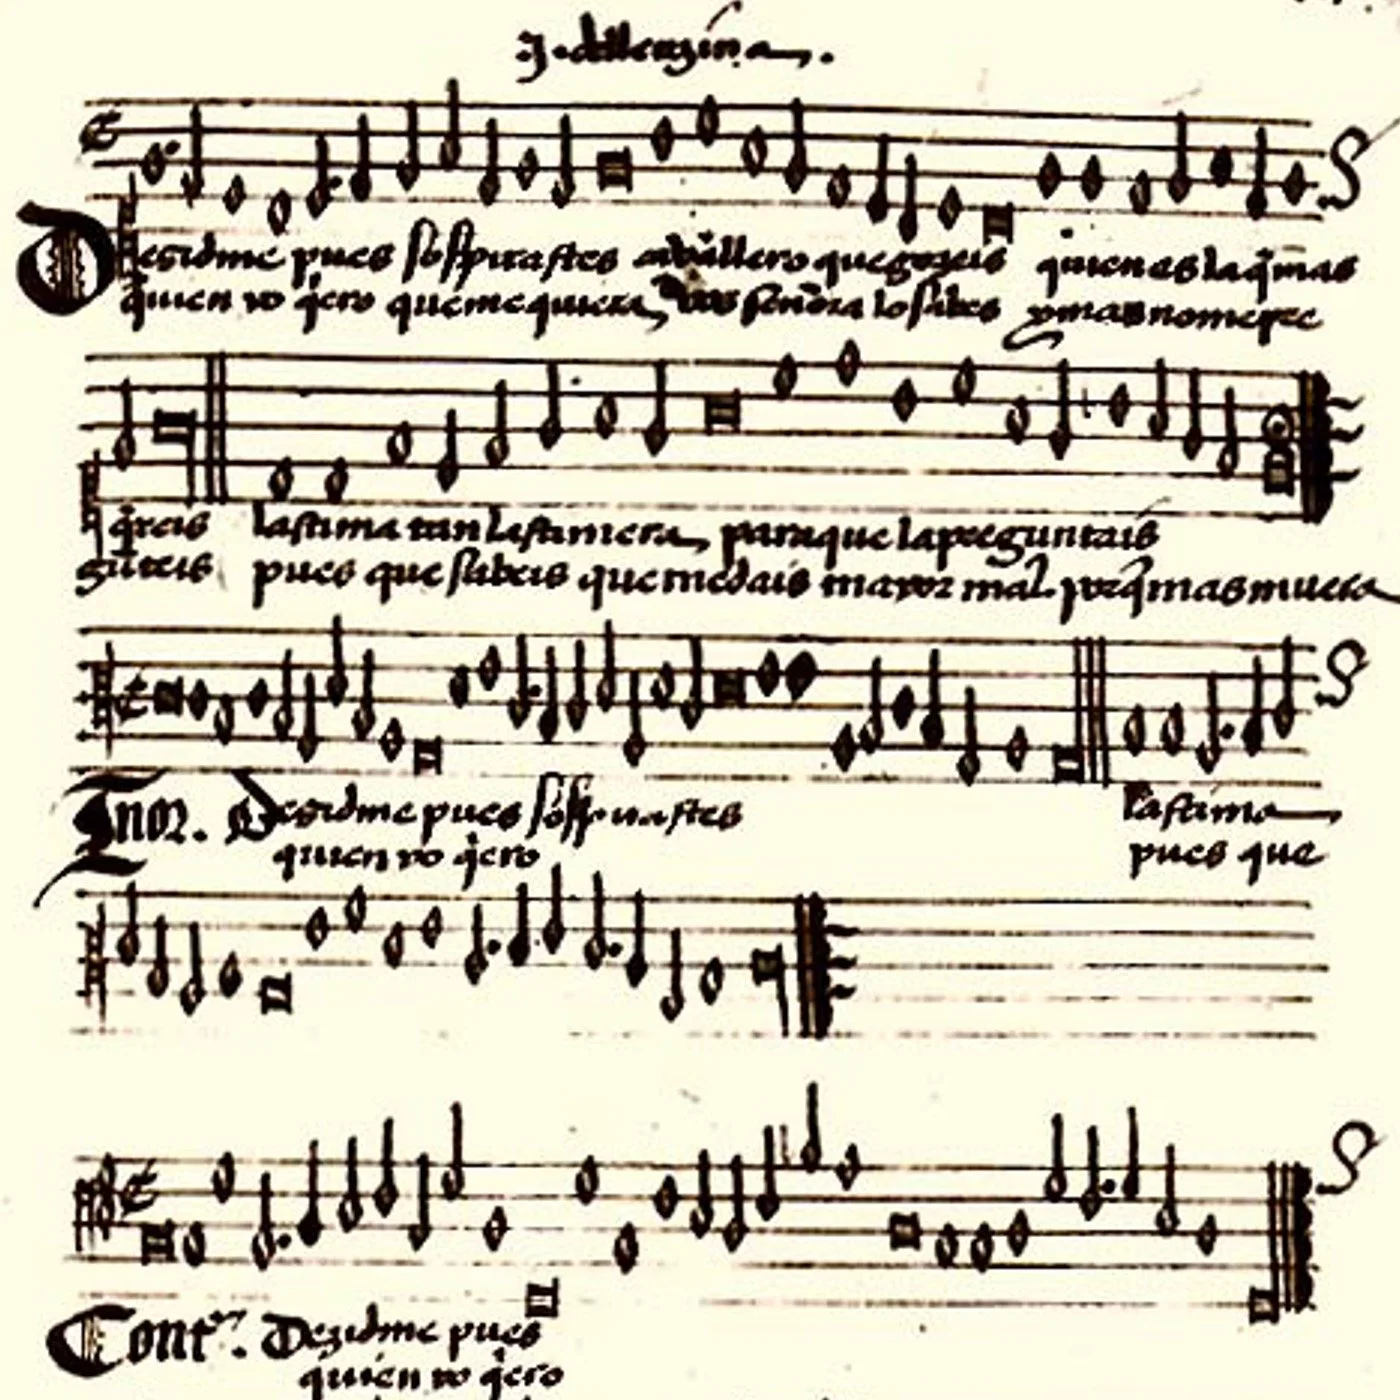 J. dellenzina.
Dezidme pues sospirastes cavallero que gozeis quien es la q̃ mas
quien yo q̃ero que me quiera, vos señora lo sabes y mas no me pre
q̃reis lastima tan lastimera, para que la preguntais
gūteis pues que sabeis que me dais mayor mal porq̃ mas muera
Tenor. Dezidme pues sospirastes lastima
quien yo q̃ero pues que
Contra. Dezidme pues
quien yo q̃ero